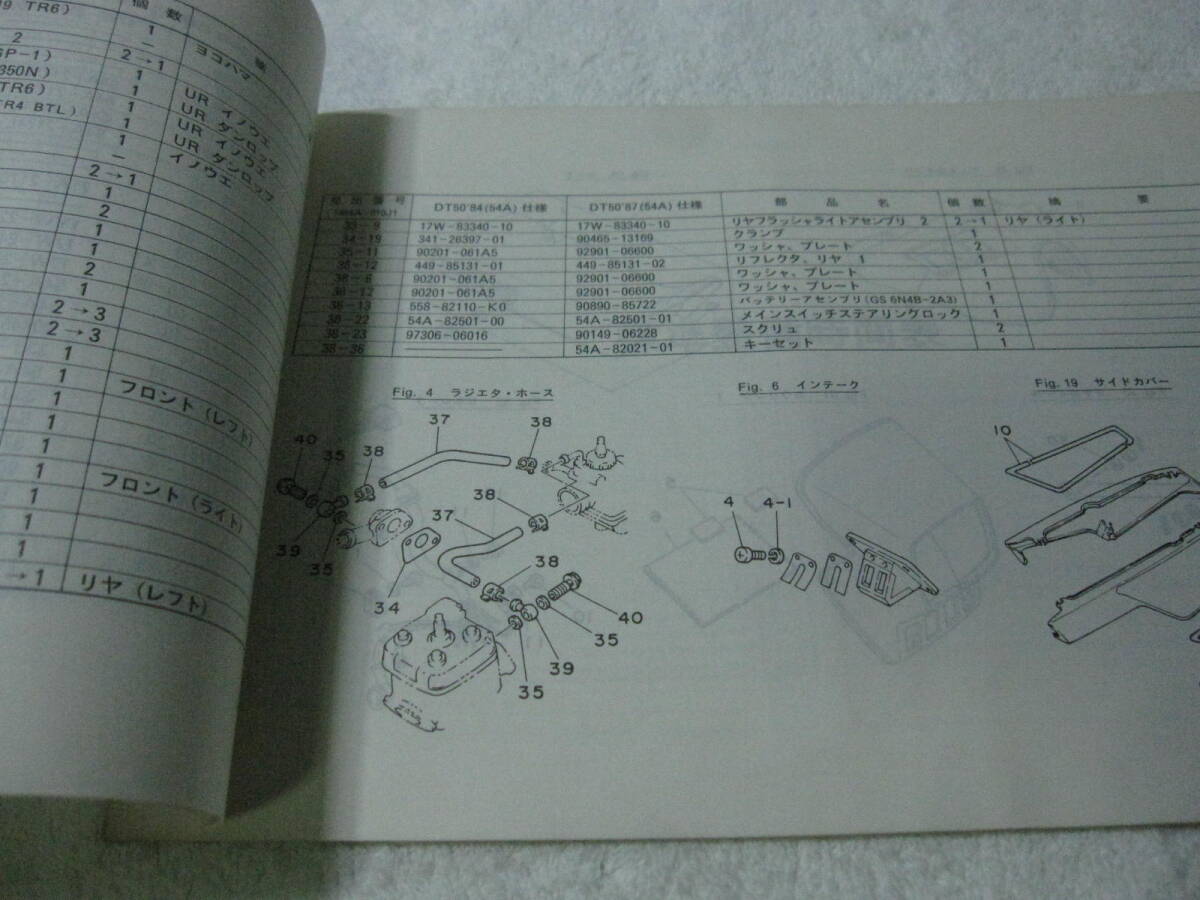 個 数
摘
9 TR6)
1
ヨコハマ
2
—
GP-1)
2→1
350N)
1
UR イノウエ
TR6)
1
UR ダンロップ
TR4 BTL)
1
UR イノウエ
1
UR ダンロップ
1
イノウエ
—
2→1
1
2
1
1
2
1
2→3
2→3
1
1
フロント (レフト)
1
1
1
1
フロント (ライト)
1
1
1
→1 リヤ (レフト)
部 品 番 号 DT50'84(54A) 仕様 DT50'87(54A) 仕様 部 品 名 個 数 摘 要
33-9 17W-83340-10 17W-83340-10 リヤフラッシャライトアセンブリ 2 2→1 リヤ (ライト)
34-19 341-26397-01 90465-13169 クランプ 1
35-11 90201-061A5 92901-06600 ワッシャ、プレート 2
35-12 449-85131-01 449-85131-02 リフレクタ、リヤ 1 1
90201-061A5 92901-06600 ワッシャ、プレート 1
90201-061A5 92901-06600 ワッシャ、プレート 1
38-13 558-82110-K0 90890-85722 バッテリーアセンブリ(GS 6N4B-2A3) 1
38-22 54A-82501-00 54A-82501-01 メインスイッチステアリングロック 1
38-23 97306-06016 90149-06228 スクリュ 2
38-36 54A-82021-01 キーセット 1
Fig. 4 ラジエタ・ホース
37
38
40
35
38
38
37
39
35
38
34
40
35
39
35
Fig. 6 インテーク
4
4-1
Fig. 19 サイドカバー
10